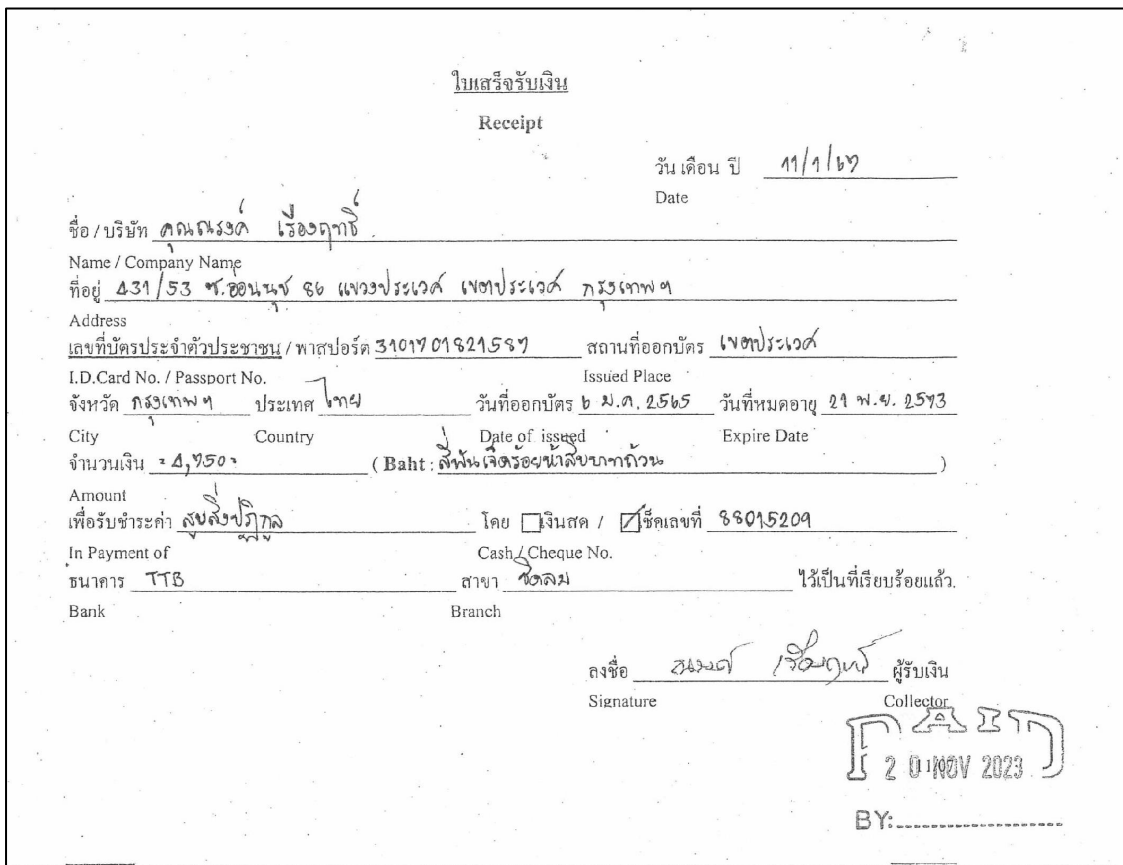 ใบเสร็จรับเงิน
Receipt
วัน เดือน ปี 11/1/67
Date
ชื่อ / บริษัท คุณณรงค์ เรืองฤทธิ์
Name / Company Name
ที่อยู่ 431/53 ซ.อ่อนนุช 86 แขวงประเวศ เขตประเวศ กรุงเทพฯ
Address
เลขที่บัตรประจำตัวประชาชน / พาสปอร์ต 3101701821587 สถานที่ออกบัตร เขตประเวศ
I.D.Card No. / Passport No. Issued Place
จังหวัด กรุงเทพฯ ประเทศ ไทย วันที่ออกบัตร 6 ม.ค. 2565 วันที่หมดอายุ 21 พ.ย. 2573
City Country Date of issued Expire Date
จำนวนเงิน =4,750= ( Baht : สี่พันเจ็ดร้อยห้าสิบบาทถ้วน )
Amount
เพื่อรับชำระค่า สูบสิ่งปฏิกูล โดย เงินสด / เช็คเลขที่ 88015209
In Payment of Cash / Cheque No.
ธนาคาร TTB สาขา ชิดลม ไว้เป็นที่เรียบร้อยแล้ว.
Bank Branch
ลงชื่อ ณรงค์ เรืองฤทธิ์ ผู้รับเงิน
Signature Collector
PAID
20 NOV 2023
BY: